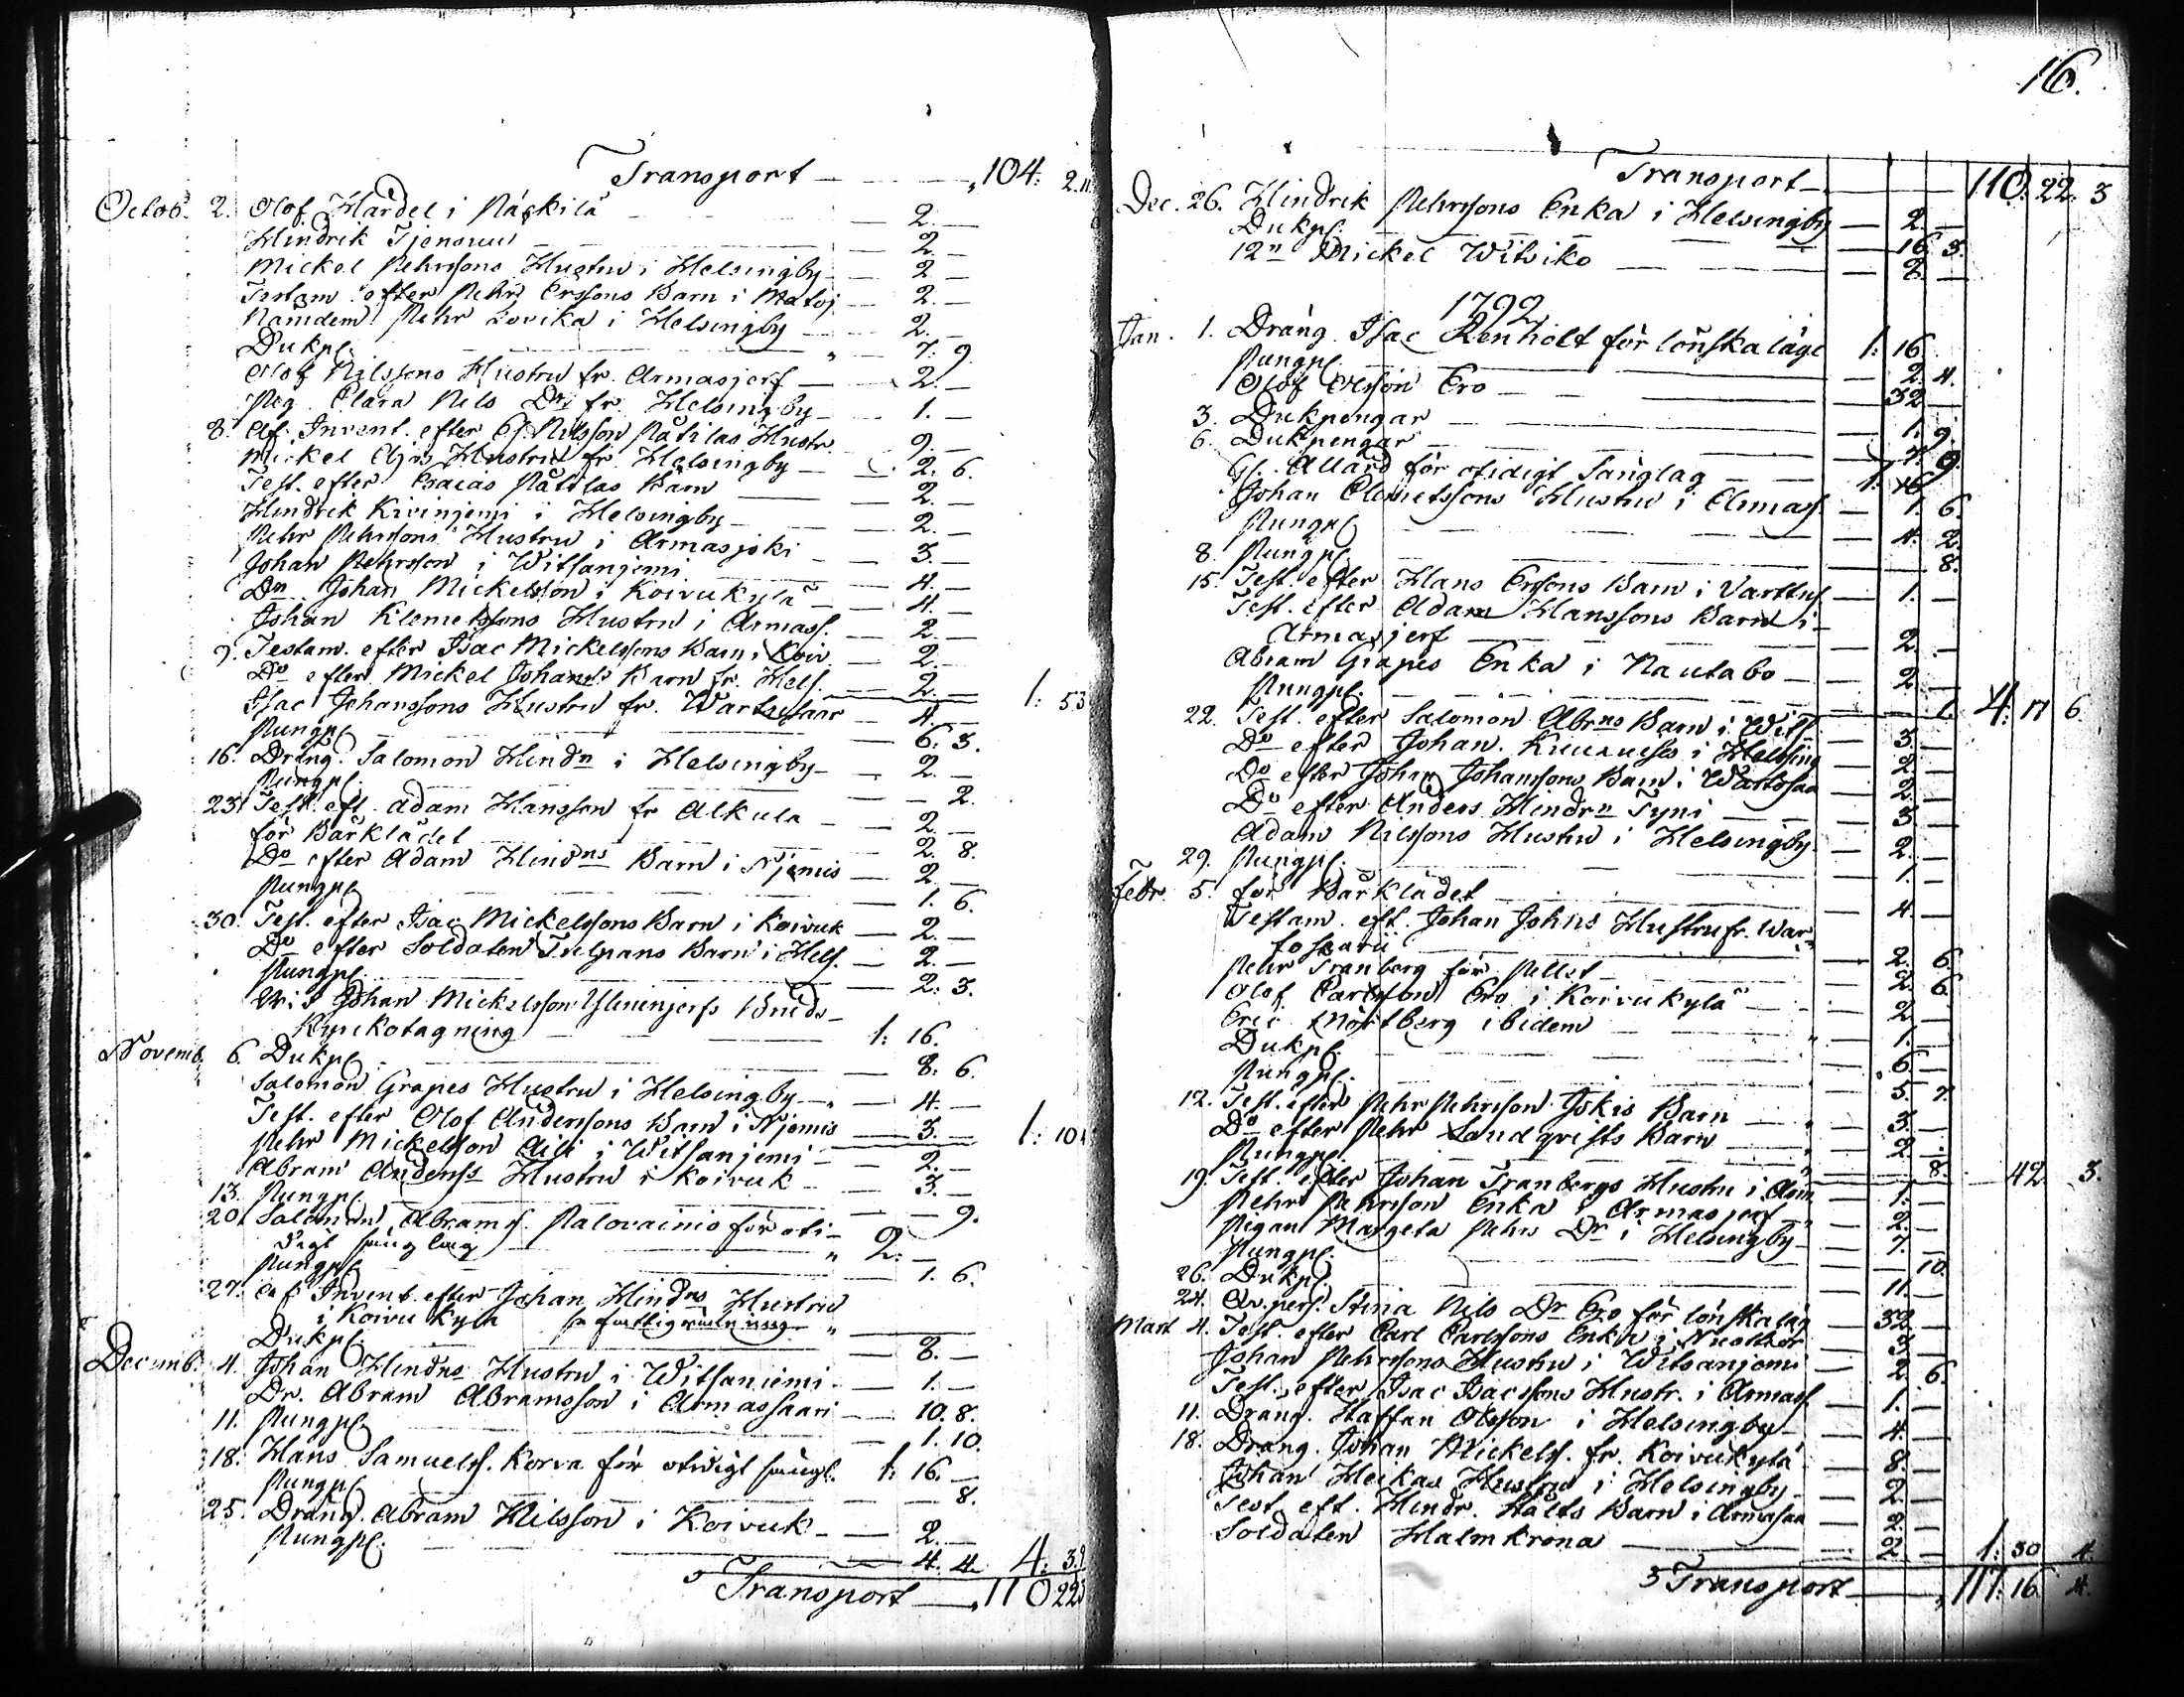 Transport — 104: 2.11
Octob. 2. Olof Hardel i Päckilä — 2. —
Hindrik Tjenouu — 2. —
Mickel Pehrssons Hustru i Helsingby — 2 —
Testam. efter Pehr Erssons Barn i Matoj — 2. —
Nämdem. Pehr Lovika i Helsingby — 2. —
Dukp. — 7. 9.
Olof Nilssons Hustru fr. Armasjerf — 2. —
Pig. Clara Nils Dr fr. Helsingby — 1. —
8. Af Invent. efter Ol. Nilsson Pätilas Hustr. 9. —
Mickel Hustru fr. Helsingby — 2. 6.
Test. efter Esaias Pätilas Barn — 2. —
Hindrik Kivinjemi i Helsingby — 2. —
Pehr Pehrssons Hustru i Armasjoki — 3. —
Johan Pehrsson i Witsanjemi — 4. —
Dn Johan Mickelsson i Koivukylä — 4. —
Johan Klemetssons Hustru i Armass. — 2. —
9. Testam. efter Isac Mickelssons Barn i Koiv. — 2. —
Do efter Mickel Johans Barn fr. Hels. — 2. — 1: 53
Isac Johanssons Hustru fr. Wartosaar — 4. —
Pungp. — 6. 3.
16. Dräng. Salomon Hindn i Helsingby — 2. —
Pungp. — 2.
23. Test. eft. Adam Hansson fr Alkula — 2. —
för Bårklädet — 2. 8.
Do efter Adam Hindns Barn i Njemis — 2. —
Pungp. — 1. 6.
30. Test. efter Isac Mickelssons Barn i Koivuk — 2. —
Do efter Soldaten Tulpans Barn i Hels. — 2. —
Pungp. — 2. 3.
Johan Mickelsson Yleninjerfs Bruds
Kyrkotagning — 1: 16.
Novemb. 6. Dukp. — 8. 6.
Salomon Grapes Hustru i Helsingby — 4. —
Test. efter Olof Anderssons Barn i Njemis — 3. — 1: 10
Pehr Mickelsson i Witsanjemi — 2. —
Abram Anderss Hustru i Koivuk — 3. —
13. Pungp. — 9.
20. Salomon Abramss. Palovainio för oti-
digt säng lag " 2. —
Pungp. — 1. 6.
27. Af Invent. efter Johan Hindns Hustru
i Koivu Kylä "
Dukp. — 8. —
Decemb. 4. Johan Hindns Hustru i Witsaniemi — 1. —
Dr. Abram Abramsson i Armassaari — 10. 8.
11. Pungp. — 1. 10.
18. Hans Samuelss. Korva för otidigt sängl. 1: 16. —
Pungp. — 8.
25. Dräng. Abram Nilsson i Koivuk — 2. —
Pungp. — 4. 4. 4: 39
Transport — 110 22 3
16.
Transport — 110. 22. 3
Dec. 26. Hindrik Pehrssons Enka i Helsingby — 2. —
Dukp. — 16. 3.
12n Mickel Witsiko — 2. —
1792
Jan. 1. Dräng. Isac Renholt för lönskaläge 1: 16.
Pungp. — 2. 4.
Olof Olsson Ero — 32 —
3. Dukpengar — 1. 9.
6. Dukpengar — 7. 9.
Allard för otidigt Sänglag — 1: 16
Johan Clemetssons Hustru i Armass. — 1. 6.
Pungp. — 4. 2.
8. Pungp. — 8.
15. Test. efter Hans Erssons Barn i Vartus — 1. —
Test. efter Adam Hanssons Barn i
Armasjerf — 2. —
Abram Grapes Enka i Nautabo — 2. —
Pungp. — 1. 4. 17 6.
22. Test. efter Salomon Abrns Barn i Wits. — 3. —
Do efter Johan i Helsing — 2. —
Do efter Johan Johanssons Barn i Wartosaa — 2. —
Do efter Anders Hindrn Tyni — 3. —
Adam Nilssons Hustru i Helsingby — 2. —
29. Pungp. — 1. —
Febr. 5. för Bårklädet — 4. —
Testam. eft. Johan Johns Hustru fr. War-
tosaari — 2. 6.
Pehr Tranberg för Pellet — 2. 6.
Olof Carlsson Ero i Koivukylä — 2. —
Eric Mörtberg ibidem — 1. —
Dukp. — 6. —
Pungp. — 5. 7.
12. Test. efter Pehr Pehrsson Jokis Barn — 3. —
Do efter Pehr Landqvists Barn — 2. —
Pungp. — 8. 42. 3.
19. Test. efter Johan Tranbergs Hustru i Arm. — 1. —
Pehr Pehrsson Enka i Armasjerf — 2. —
Pigan Margeta Pehrs Dr i Helsingby — 7. —
Pungp. — 10.
26. Dukp. — 11. —
24. Qv. pers. Stina Nils Dr Ero för lönskaläg — 32. —
Mart 4. Test. efter Carl Carlssons Enka i — 3 —
Johan Pehrssons Hustru i Witsanjemi — 2. 6.
Test. efter Isac Isacssons Hustr. i Armass. — 1. —
11. Dräng. Staffan Olsson i Helsingby — 4. —
18. Dräng. Johan Mickelss. fr. Koivukylä — 8. —
Johan Heikas Hustru i Helsingby — 2 —
Test. eft. Hindr. Hälts Barn i Armasaa — 2. —
Soldaten Malmkrona — 2. — 1: 30 4.
Transport — 117. 16. 4.